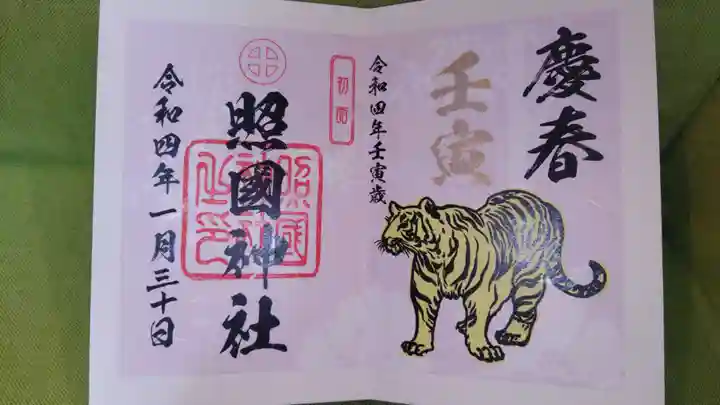 慶春
壬寅
令和四年壬寅歳
初詣
照國神社
令和四年一月三十日